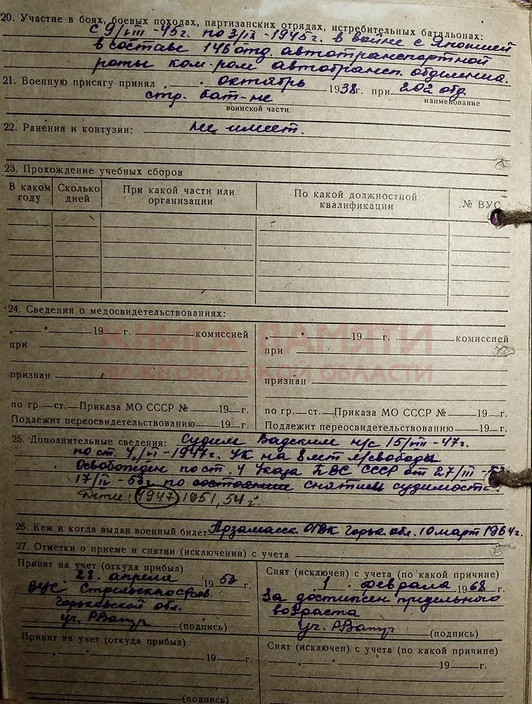 20. Участие в боях, боевых походах, партизанских отрядах, истребительных батальонах:
с 9/VIII-45г. по 3/IX-1945г. в войне с Японией
в составе 146 отд. автотранспортной
роты ком-ром автотрансп. отделения.
21. Военную присягу принял октябрь 1938 г. при 202 отд.
наименование
стр. бат-не
воинской части
22. Ранения и контузии: не имеет.
23. Прохождение учебных сборов
В каком году
Сколько дней
При какой части или организации
По какой должностной квалификации
№ ВУС
24. Сведения о медосвидетельствованиях:
19 г. комиссией
19 г. комиссией
при
при
КНИГА ПАМЯТИ
НИЖЕГОРОДСКОЙ ОБЛАСТИ
признан
признан
по гр.—ст.—Приказа МО СССР № 19 г.
по гр.—ст.—Приказа МО СССР № 19 г.
Подлежит переосвидетельствованию 19 г.
Подлежит переосвидетельствованию 19 г.
25. Дополнительные сведения: Судим Вадским н/с 15/VII-47г.
по ст. 4/VI-1947г. УК на 8 лет л/свободы
Освобожден по ст. 4 Указа ПВС СССР от 27/III-53
17/IV-53г. по снятием судимость.
Дети: 1947, 1951, 54 г.
26. Кем и когда выдан военный билет Арзамасск. ОГВК Горьк. обл. 10 март 1964 г.
27. Отметки о приеме и снятии (исключении) с учета
Принят на учет (откуда прибыл)
28. апреля 1953
ВУС
Горьковской обл.
уч.
(подпись)
Снят (исключен) с учета (по какой причине)
1 февраля 1968
За достижен. предельного
возраста
уч.
(подпись)
Принят на учет (откуда прибыл)
19 г.
(подпись)
Снят (исключен) с учета (по какой причине)
19 г.
(подпись)